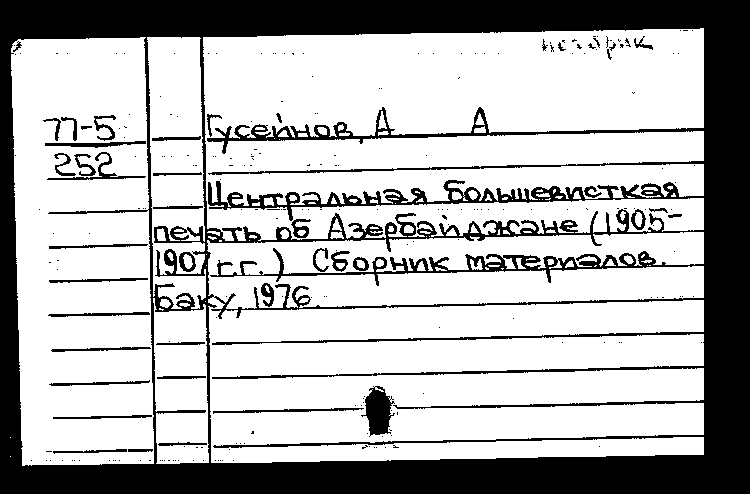 77-5 Гусейнов, А А
252
Центральная большевисткая
печать об Азербайджане (1905-
1907 г.г.) Сборник материалов.
Баку, 1976.